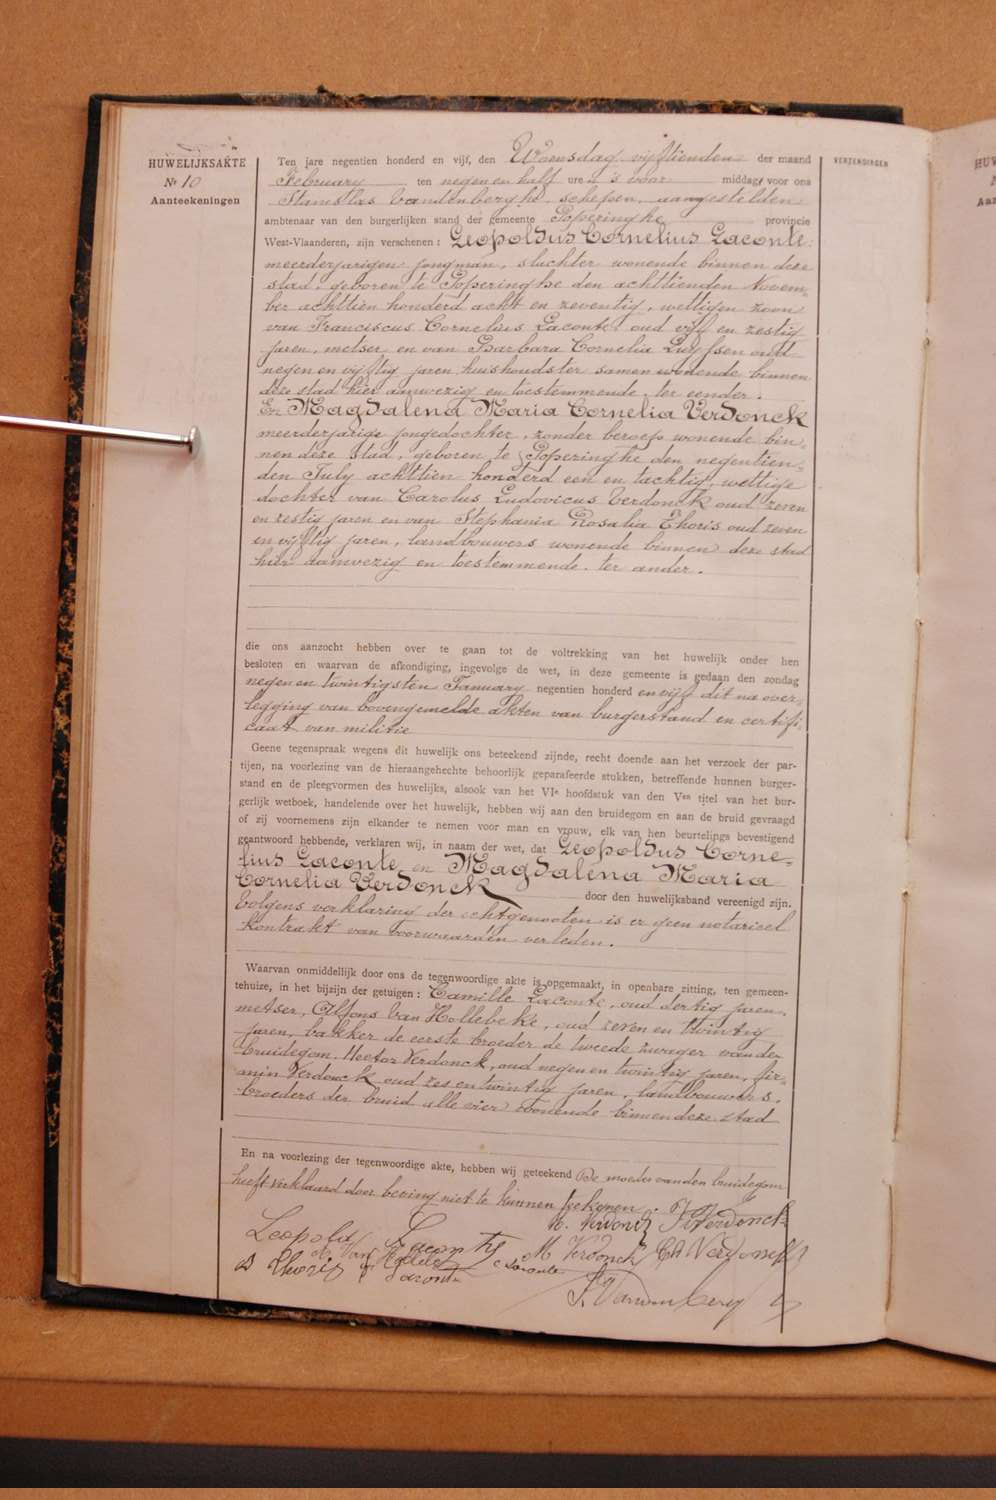 HUWELIJKSAKTE
Nr 10
Aanteekeningen
VERZENDINGEN
Ten jare negentien honderd en vijf, den Woensdag vijftienden der maand
February ten negen en half ure 's voor middag, voor ons
Stanislas Vandenberghe, schepen, aangestelden
ambtenaar van den burgerlijken stand der gemeente Poperinghe provincie
West-Vlaanderen, zijn verschenen : Leopoldus Cornelius Laconte
meerderjarigen jongman, slachter wonende binnen deze
stad, geboren te Poperinghe den achttienden novem-
ber achttien honderd acht en zeventig, wettigen zoon
van Franciscus Cornelius Laconte oud vijf en zestig
jaren, metser en van Barbara Cornelia Luyssen oud
negen en vijftig jaren huishoudster samen wonende binnen
deze stad hier aanwezig en toestemmende, ter eender.
En Magdalena Maria Cornelia Verdonck
meerderjarige jongedochter, zonder beroep wonende bin-
nen deze stad, geboren te Poperinghe den negentien-
den July achttien honderd een en tachtig, wettige
dochter van Carolus Ludovicus Verdonck oud zeven
en zestig jaren en van Stephania Rosalia Thoris oud zeven
en vijftig jaren, landbouwers wonende binnen deze stad
hier aanwezig en toestemmende ter ander.
die ons aanzocht hebben over te gaan tot de voltrekking van het huwelijk onder hen
besloten en waarvan de afkondiging, ingevolge de wet, in deze gemeente is gedaan den zondag
negen en twintigsten January negentien honderd en vijf dit na over-
legging van bovengemelde akten van burgerstand en certifi-
caat van militie
Geene tegenspraak wegens dit huwelijk ons beteekend zijnde, recht doende aan het verzoek der par-
tijen, na voorlezing van de hieraangehechte behoorlijk geparafeerde stukken, betreffende hunnen burger-
stand en de pleegvormen des huwelijks, alsook van het VIe hoofdstuk van den Ven titel van het bur-
gerlijk wetboek, handelende over het huwelijk, hebben wij aan den bruidegom en aan de bruid gevraagd
of zij voornemens zijn elkander te nemen voor man en vrouw, elk van hen beurtelings bevestigend
geantwoord hebbende, verklaren wij, in naam der wet, dat Leopoldus Corne-
lius Laconte en Magdalena Maria
Cornelia Verdonck door den huwelijksband vereenigd zijn.
Volgens verklaring der echtgenooten is er geen notarieel
kontrakt van voorwaarden verleden.
Waarvan onmiddellijk door ons de tegenwoordige akte is opgemaakt, in openbare zitting, ten gemeen-
tehuize, in het bijzijn der getuigen : Camille Laconte, oud dertig jaren,
metser, Alfons Van Hollebeke, oud zeven en twintig
jaren, bakker de eerste broeder de tweede zwager van den
bruidegom. Hector Verdonck, oud negen en twintig jaren, Fir-
min Verdonck oud zes en twintig jaren, landbouwers.
broeders der bruid alle vier wonende binnen deze stad
En na voorlezing der tegenwoordige akte, hebben wij geteekend De moeder van den bruidegom
heeft verklaard door beving niet te kunnen teekenen.
H. Verdonck F. Verdonck
Leopold Laconte M Verdonck Ch Verdonck
S Thoris A. Van Hollebeke F Laconte C Laconte
S. Vandenberghe